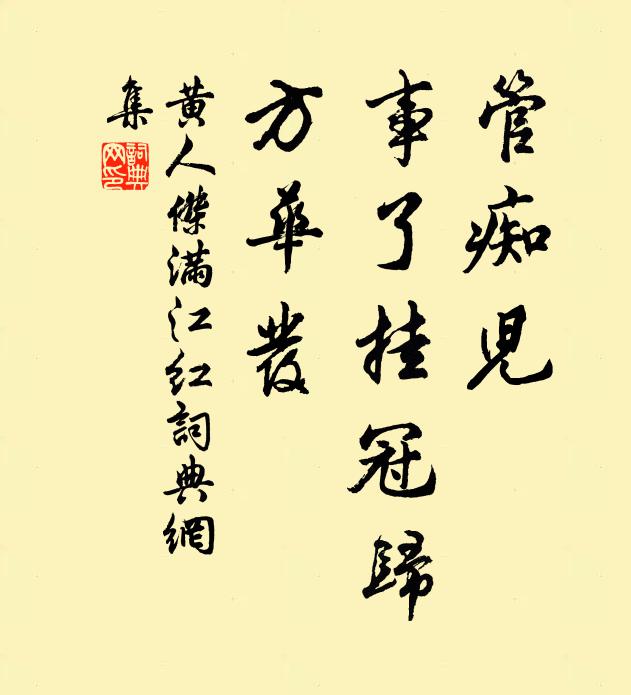 管痴児
事了挂冠歸
方華發
黄人傑滿江红詞典網
集
詞典網印